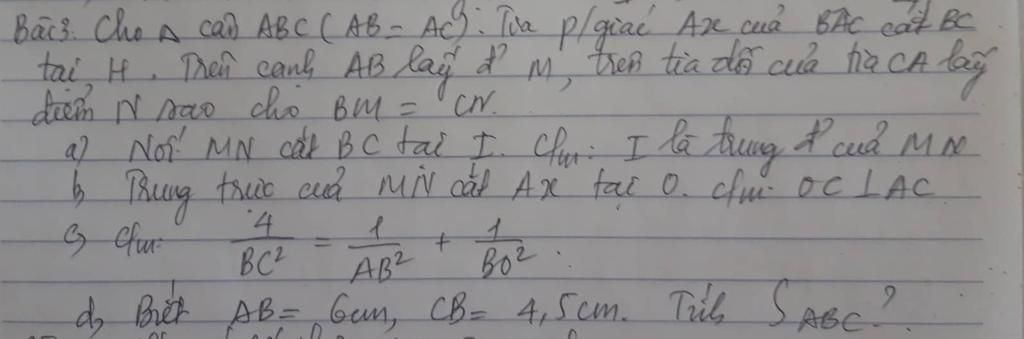 Bài 3. Cho Δ cân ABC (AB = AC). Tia p/giác Ax của BAC cắt BC
tại H. Trên cạnh AB lấy đ M, trên tia đối của tia CA lấy
điểm N sao cho BM = CN.
a) Nối MN cắt BC tại I. Cfm: I là trung đ của MN
b, Trung trực của MN cắt Ax tại O. cfm: OC ⊥ AC
c, Cfm: 4/BC² = 1/AB² + 1/BO².
d, Biết AB = 6cm, CB = 4,5cm. Tính S ABC?